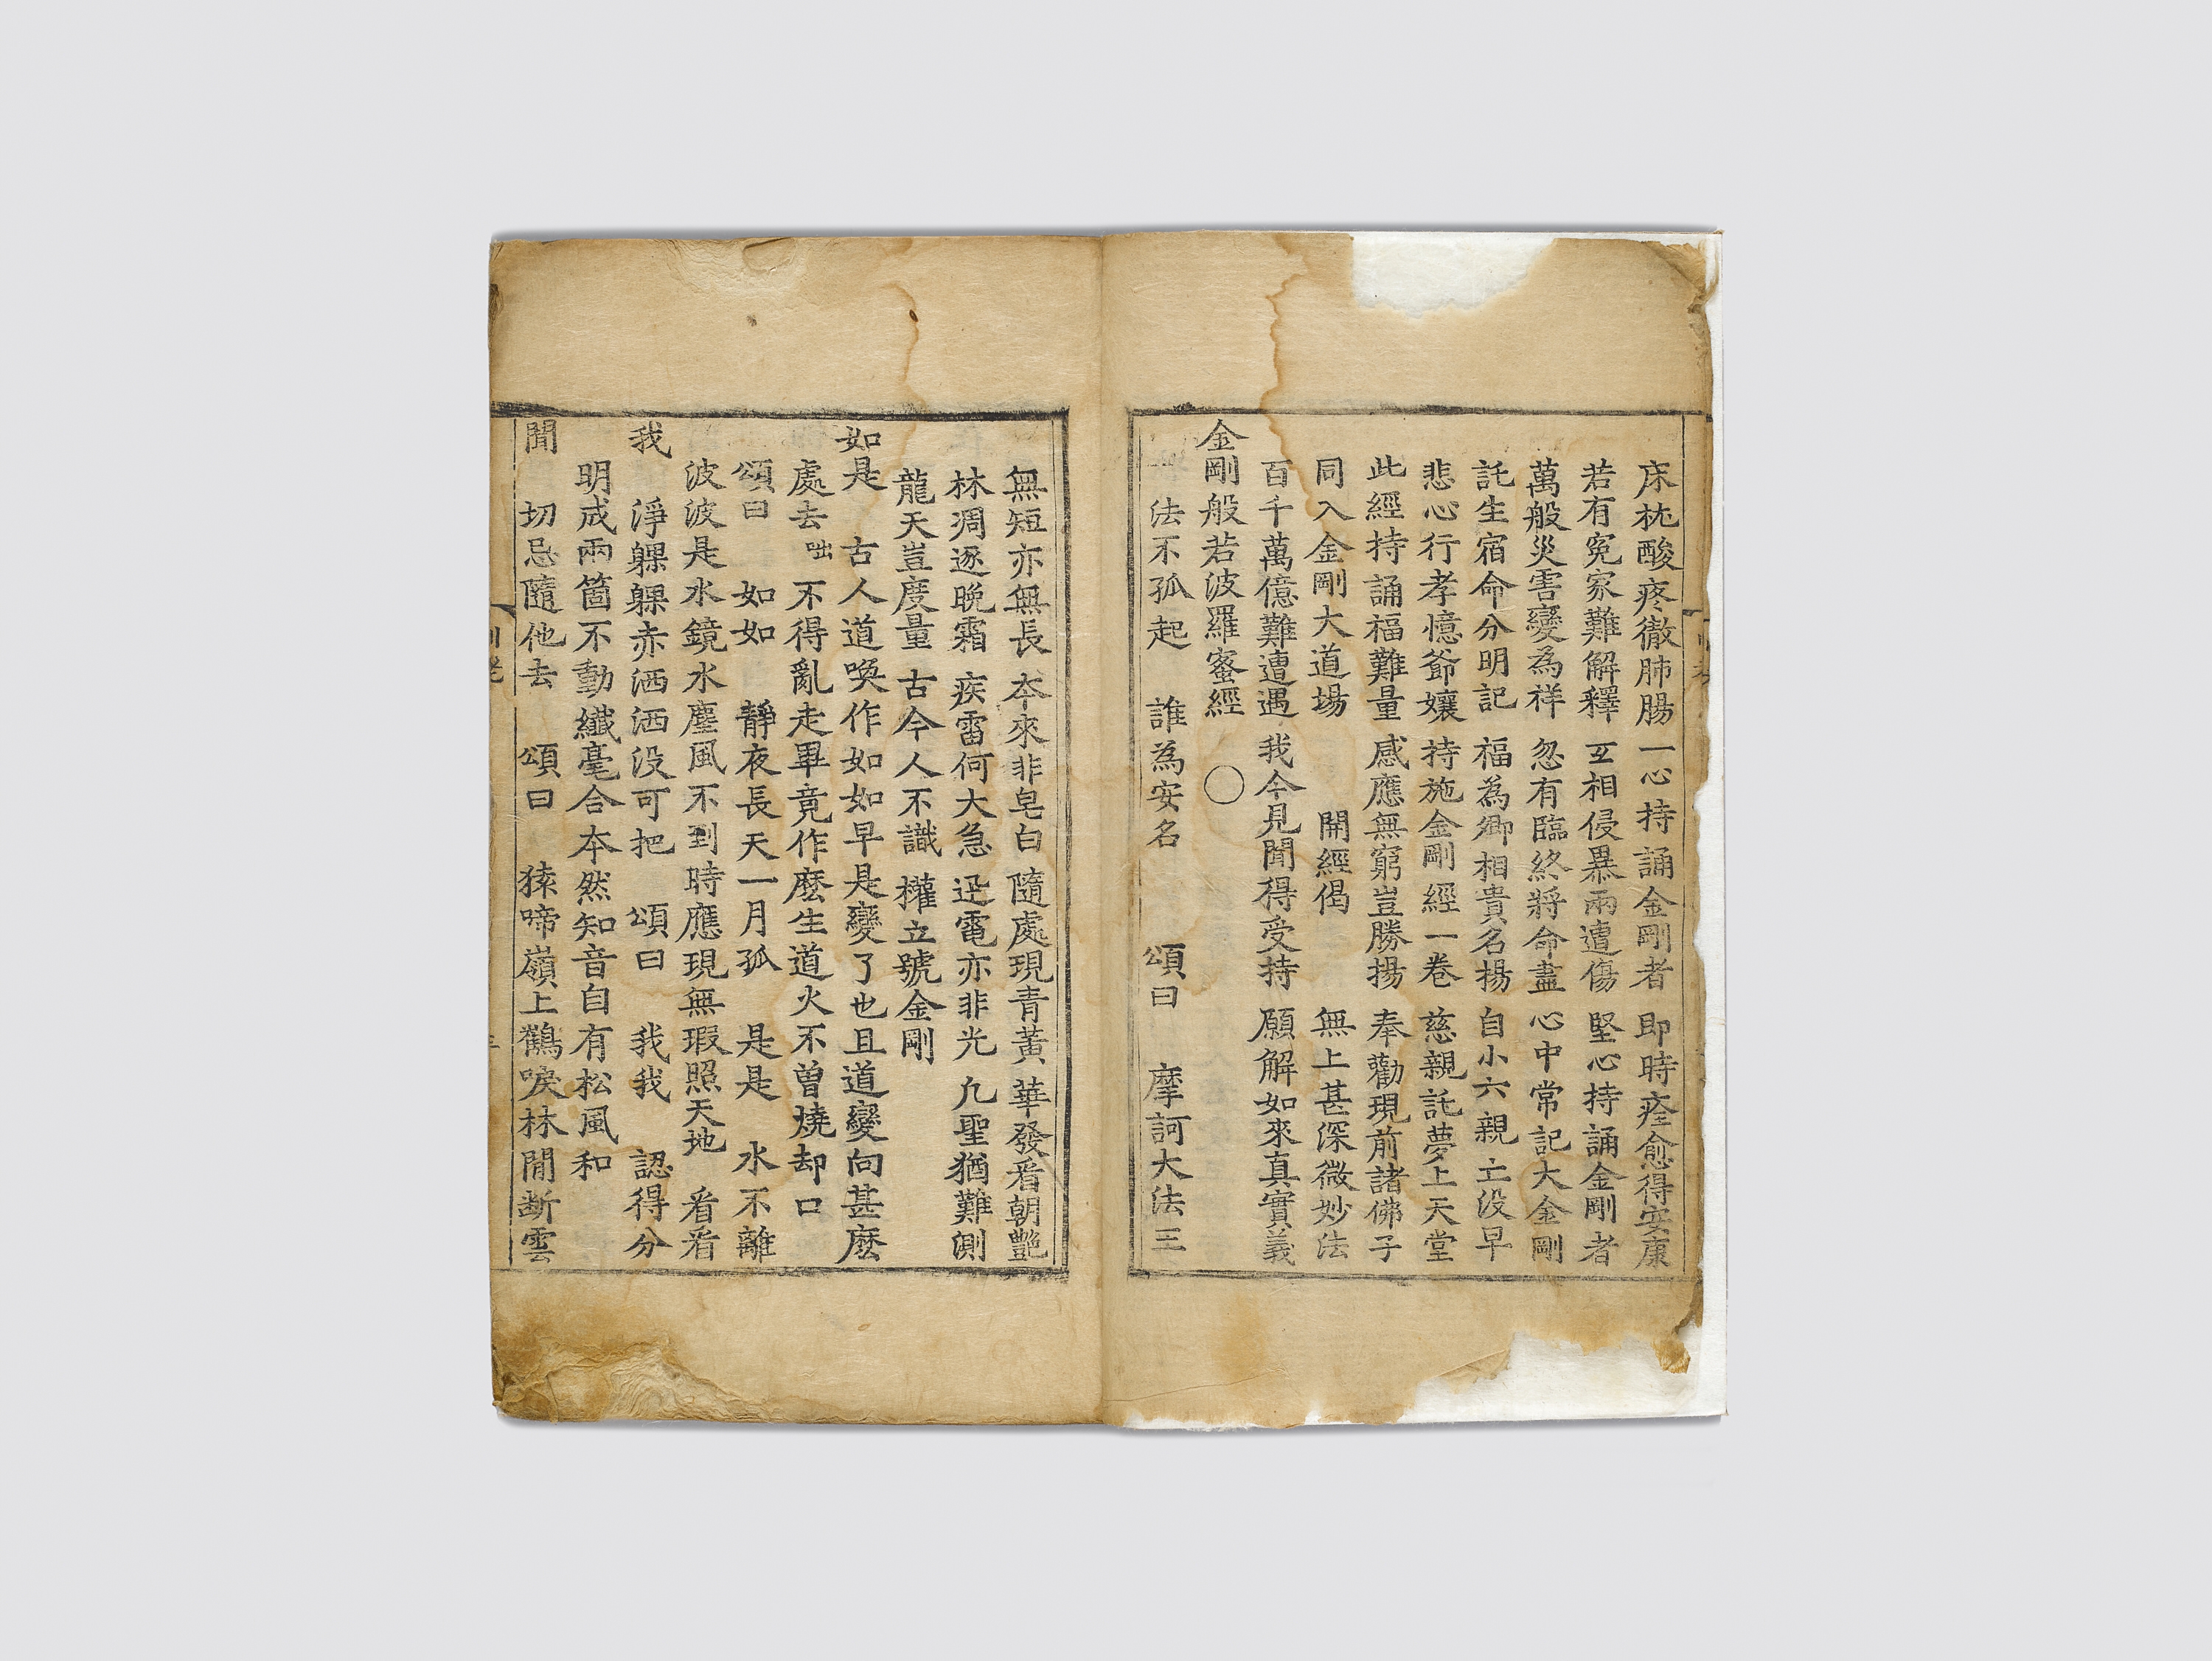 床枕酸疼徹肺腸一心持誦金剛者即時痊愈得安康
若有冤家難解釋互相侵暴兩遭傷堅心持誦金剛者
萬般災害變為祥忽有臨終將命盡心中常記大金剛
託生宿命分明記福為卿相貴名揚自小六親亡没早
悲心行孝憶爺孃持施金剛經一卷慈親託夢上天堂
此經持誦福難量感應無窮豈勝揚奉勸現前諸佛子
同入金剛大道場 開經偈 無上甚深微妙法
百千萬億難遭遇我今見聞得受持願解如來真實義
金剛般若波羅蜜經 〇
法不孤起 誰為安名 頌曰 摩訶大法王
無短亦無長 本來非皂白 隨處現青黃 華發看朝艷
林凋逐晚霜 疾雷何大急 迅電亦非光 凡聖猶難測
龍天豈度量 古今人不識 權立號金剛
如是 古人道喚作如如早是變了也且道變向甚麽
處去咄 不得亂走畢竟作麽生道火不曾燒却口
頌曰 如如 靜夜長天一月孤 是是 水不離
波波是水鏡水塵風不到時應現無瑕照天地 看看
我 淨躶躶赤洒洒没可把 頌曰 我我 認得分
明成兩箇不動纖毫合本然知音自有松風和
聞 切忌隨他去 頌曰 猿啼嶺上鶴唳林間断雲